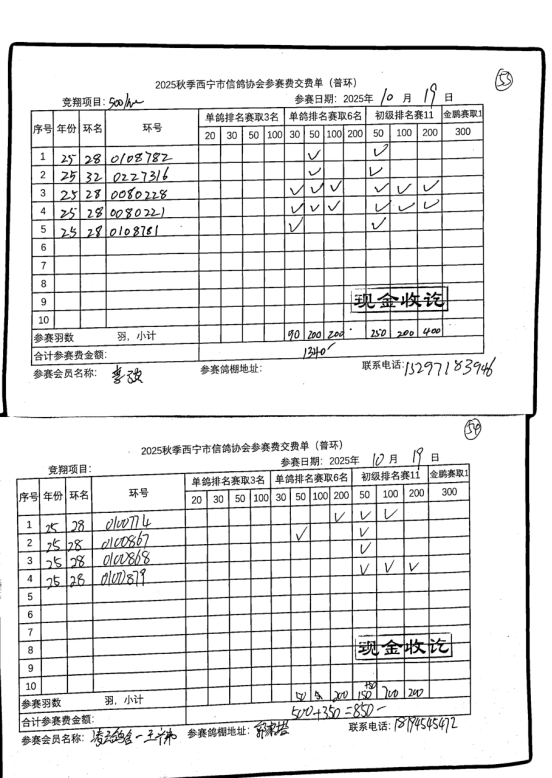 53
2025秋季西宁市信鸽协会参赛费交费单（普环）
竞翔项目: 500/hm 参赛日期: 2025年 10 月 19 日
序号 年份 环名 环号 单鸽排名赛取3名 单鸽排名赛取6名 初级排名赛11 金鹏赛取1
20 30 50 100 30 50 100 200 50 100 200 300
1 25 28 0108782 ✓ ✓
2 25 32 0227316 ✓ ✓
3 25 28 0080228 ✓ ✓ ✓ ✓ ✓ ✓
4 25 28 0080221 ✓ ✓ ✓ ✓ ✓ ✓
5 25 28 0108781 ✓ ✓
6
7
8
9
10
现金收讫
参赛羽数 羽，小计 90 200 200 250 200 400
合计参赛费金额: 1340
参赛会员名称: 参赛鸽棚地址: 联系电话: 15297183946
54
2025秋季西宁市信鸽协会参赛费交费单（普环）
竞翔项目: 参赛日期: 2025年 10 月 19 日
序号 年份 环名 环号 单鸽排名赛取3名 单鸽排名赛取6名 初级排名赛11 金鹏赛取1
20 30 50 100 30 50 100 200 50 100 200 300
1 25 28 0100774 ✓ ✓ ✓
2 25 28 0100867 ✓ ✓
3 25 28 0100868 ✓
4 25 28 0100879 ✓ ✓ ✓
5
6
7
8
9
10
现金收讫
参赛羽数 羽，小计 50 200 +50 150 200 200
合计参赛费金额: 500+350=850
参赛会员名称: 参赛鸽棚地址: 联系电话: 18194545472